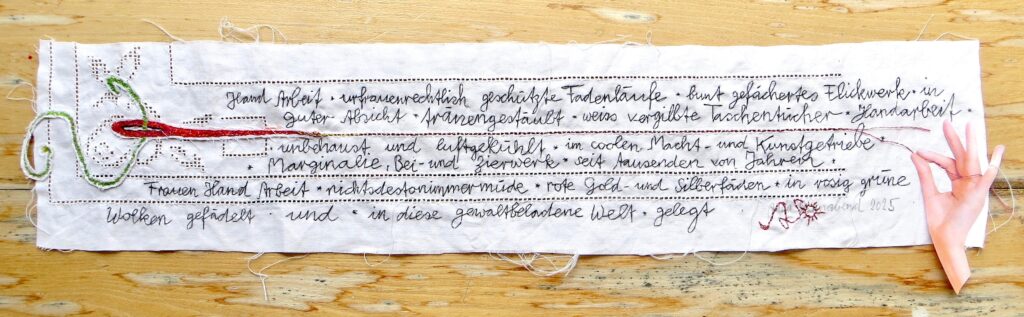 Hand Arbeit · urfrauenrechtlich geschützte Fadenläufe · bunt gefächertes Flickwerk · in
guter Absicht · tränengestäubt · weiss vergilbte Taschentücher · Handarbeit ·
unbehaust und luftgekühlt · im coolen Macht- und Kunstgetriebe ·
· Marginalie, Bei- und Zierwerk · seit tausenden von Jahren ·
Frauen Hand Arbeit · nichtsdestonimmermüde · rote Gold- und Silberfäden · in rosig grüne
Wolken gefädelt · und · in diese gewaltbeladene Welt · gelegt
2025